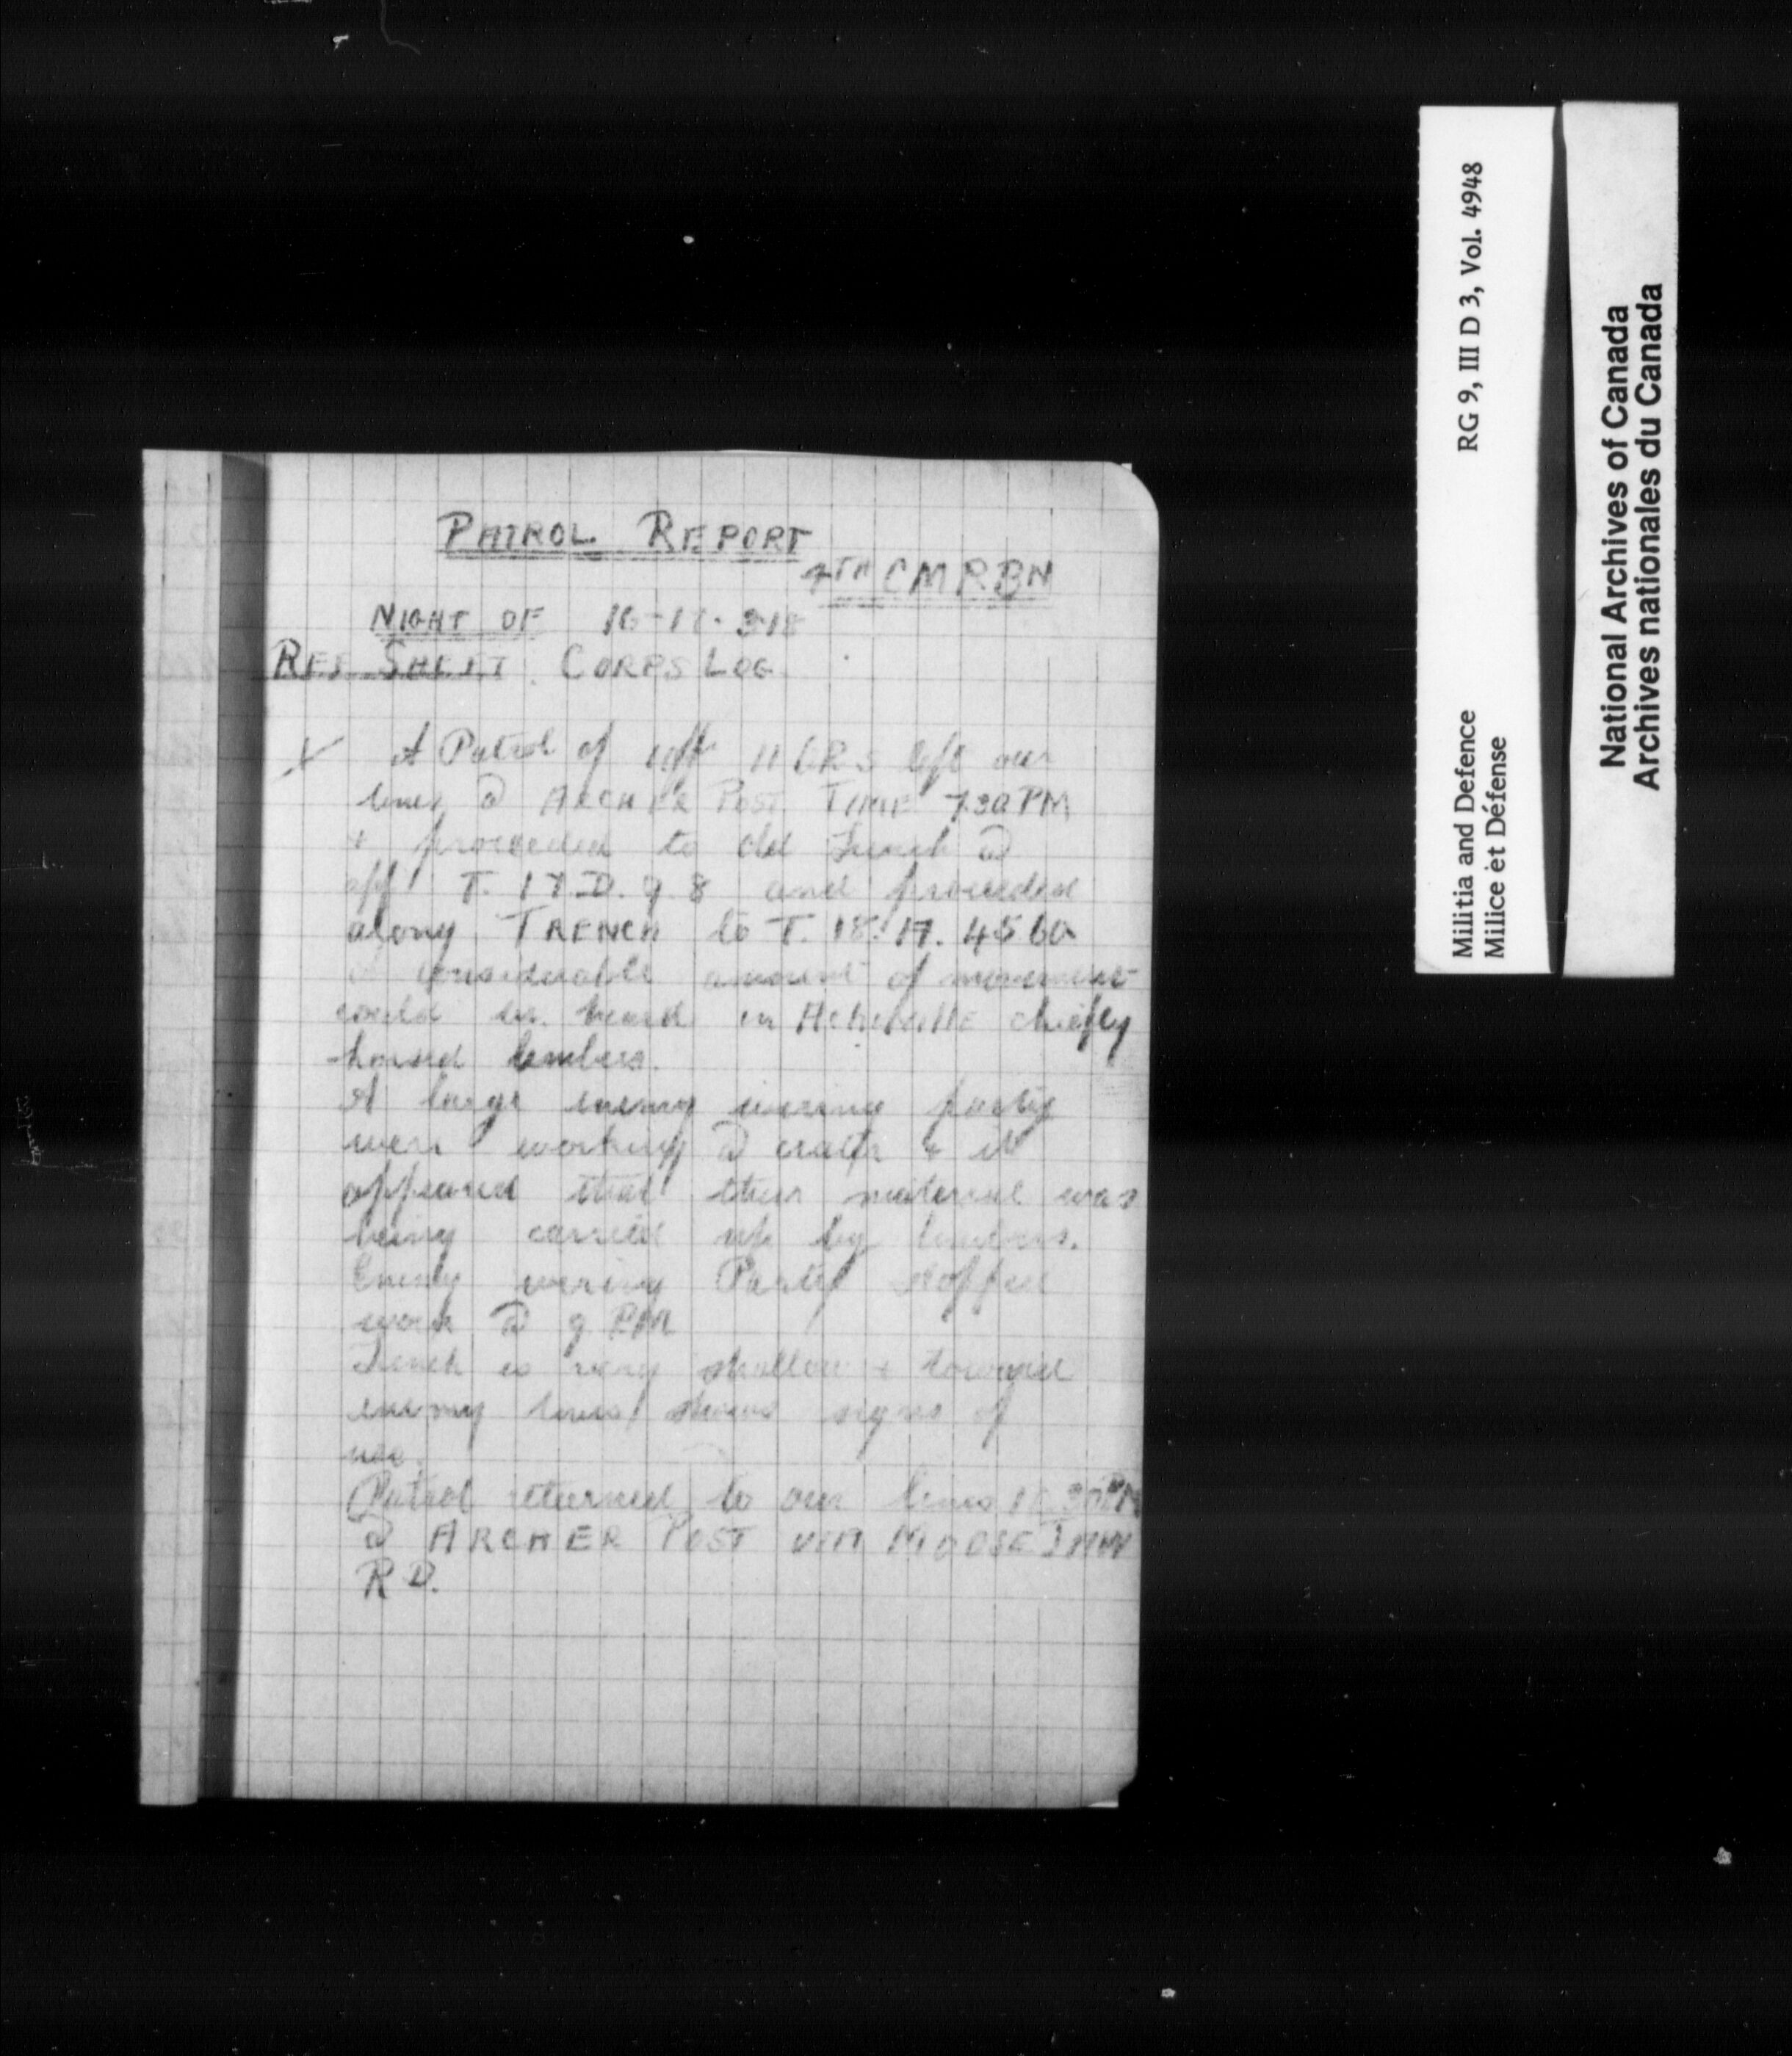 PATROL REPORT
4TH CMRBN
NIGHT OF 16-17-3-18
REF SHEET. CORPS LOG
X A Patrol of 1 off 11 ORs left our
lines @ ARCHER POST TIME 7.30 PM
+ proceeded to old Trench @
off T. 17.D. 9.8 and proceeded
along TRENCH to T. 18. A. 45 60
A considerable amount of movement
could be heard in Acheville chiefly
horsed limbers.
A large enemy wiring party
were working @ crater + it
appeared that their material was
being carried up by limbers.
Enemy wiring Party stopped
work @ 9 PM
Trench is very shallow + toward
enemy lines shows signs of
use.
Patrol returned to our lines 30 PM
@ ARCHER POST VIA MOOSE JAW
RD.
Militia and Defence RG 9, III D 3, Vol. 4948
Milice et Défense
National Archives of Canada
Archives nationales du Canada